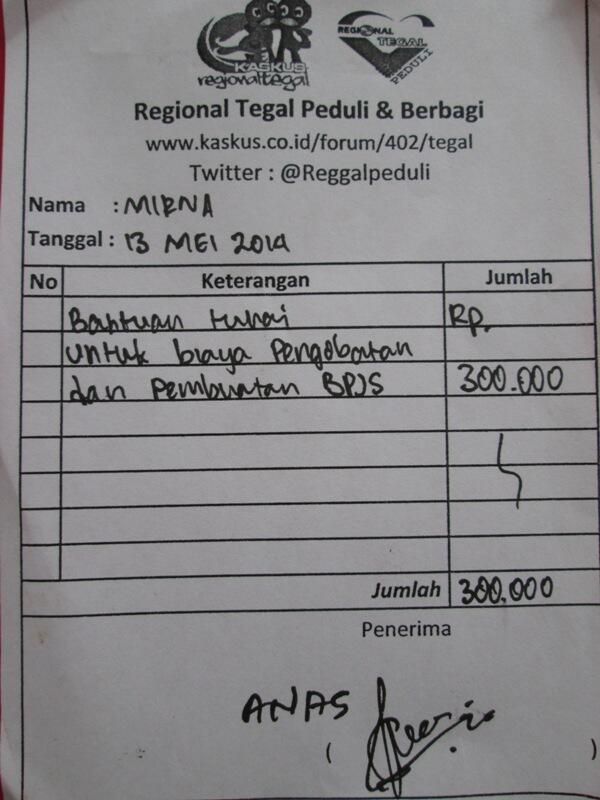 KASKUS
regionaltegal
REGIONAL
TEGAL
PEDULI
Regional Tegal Peduli & Berbagi
www.kaskus.co.id/forum/402/tegal
Twitter : @Reggalpeduli
Nama : MIRNA
Tanggal : 13 MEI 2014
No Keterangan Jumlah
Bantuan tunai Rp.
untuk biaya Pengobatan
dan Pembuatan BPJS 300.000
Jumlah 300.000
Penerima
ANAS
( )